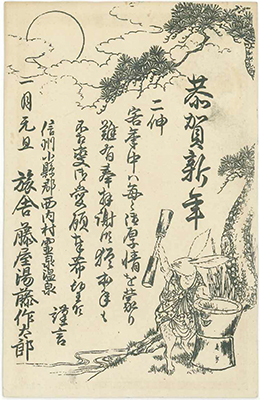 恭賀新年
二伸
客年中ハ毎々御厚情を蒙り
難有奉拝謝候猶本年も
不相変御愛顧奉希望候
謹言
信州小縣郡西内村霊泉寺温泉
一月元旦
旅舎 藤屋湯藤作太郎